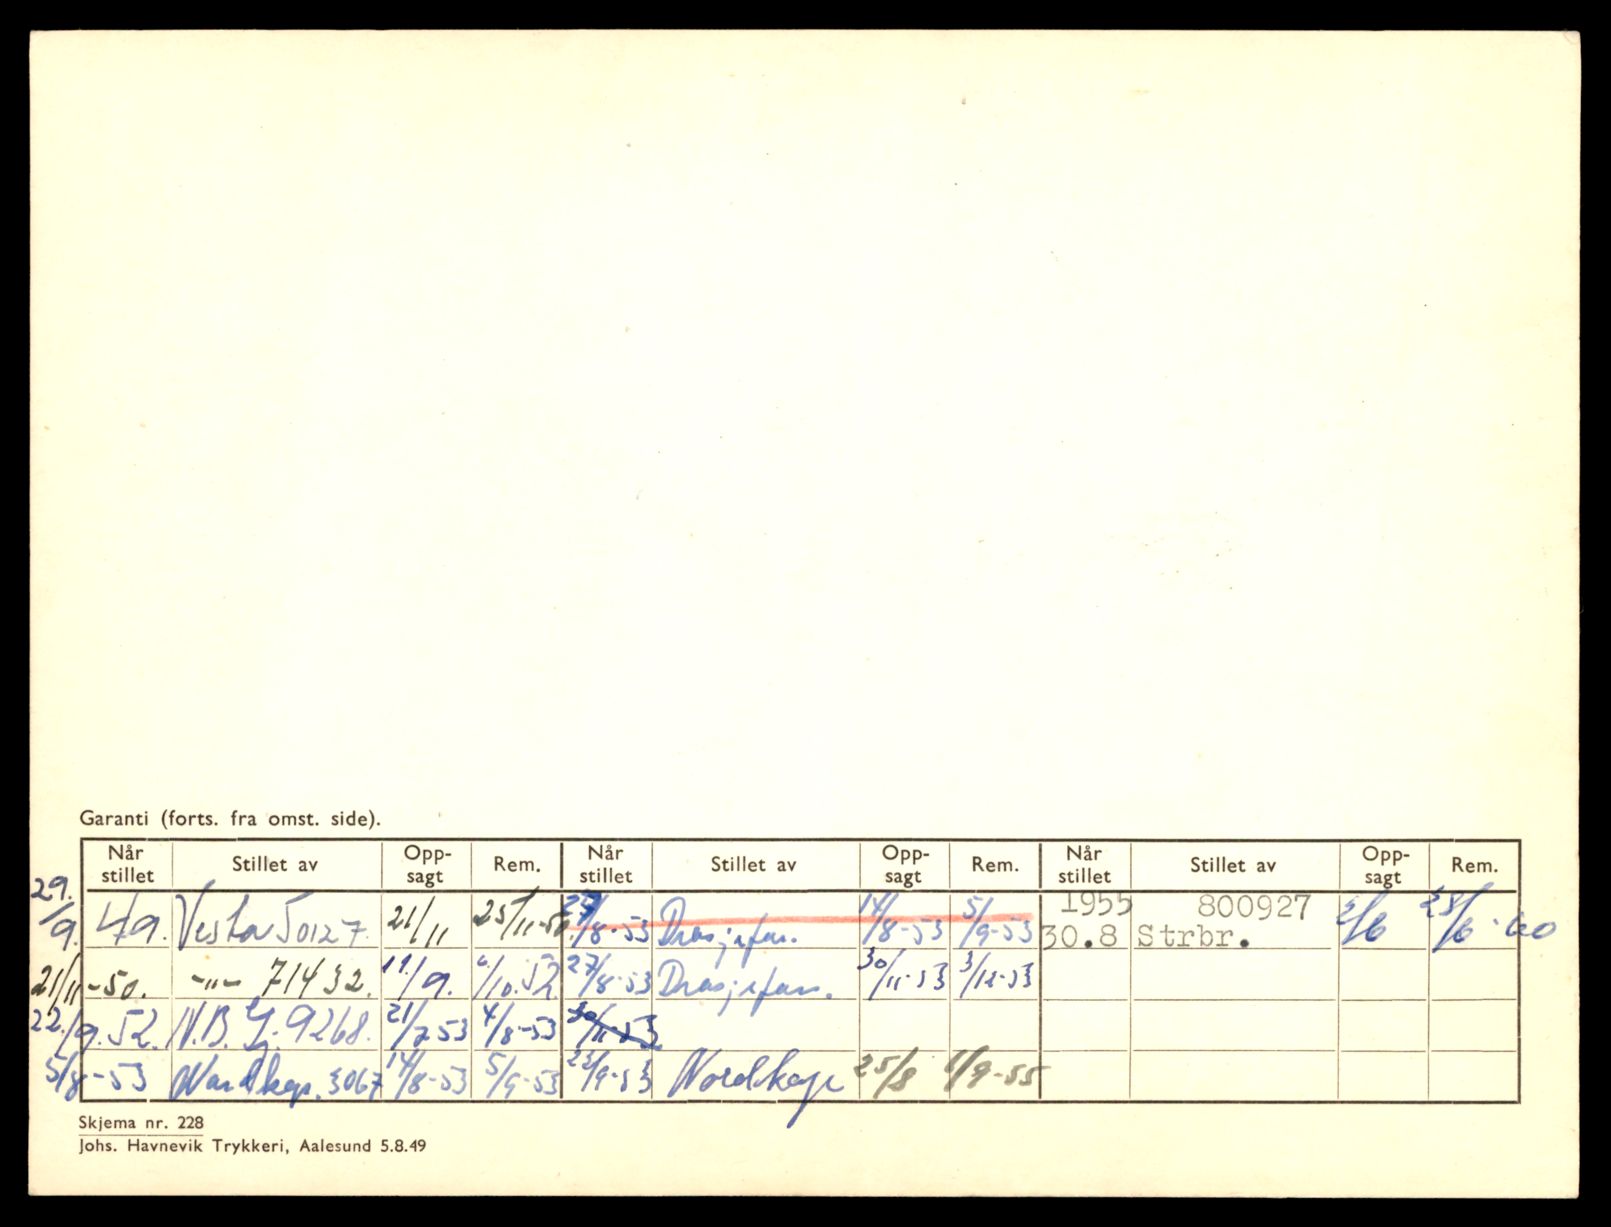 Garanti (forts. fra omst. side).
Når stillet Stillet av Opp-sagt Rem. Når stillet Stillet av Opp-sagt Rem. Når stillet Stillet av Opp-sagt Rem.
29./9. 49. Vesta 50127. 21/11 25/11-50 /8-53 14/8-53 5/9-53 1955 30.8 800927 Strbr. /6 /6-60
21/11-50. -"- 71432. /9. /10.52 27/8-53 30/11-53 3/12-53
22./9.52. N.B. 9268. 21/7 53 4/8-53 30/11-53
5/8-53 Nordkap. 3067 14/8-53 5/9-53 23/9-53 Nordkap 25/8 /9-55
Skjema nr. 228
Johs. Havnevik Trykkeri, Aalesund 5.8.49